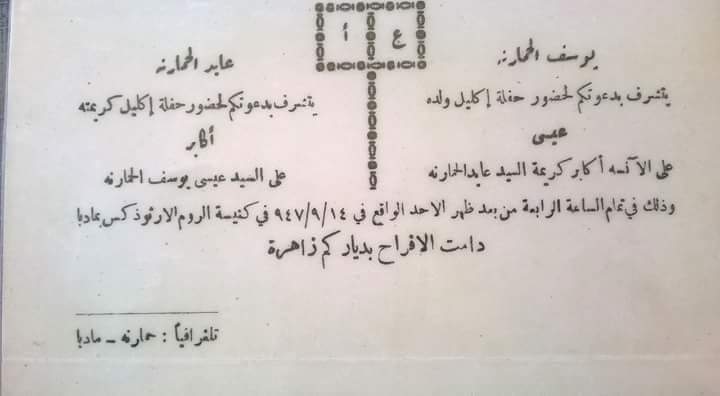 ع أ
يوسف الحمارنه
يتشرف بدعوتكم لحضور حفلة إكليل ولده
عيسى
على الآنسه أكابر كريمة السيد عابد الحمارنه
عابد الحمارنه
يتشرف بدعوتكم لحضور حفلة إكليل كريمته
أكابر
على السيد عيسى يوسف الحمارنه
وذلك في تمام الساعة الرابعة من بعد ظهر الاحد الواقع في ٩٤٧/٩/١٤ في كنيسة الروم الارثوذكس بمادبا
دامت الافراح بدياركم زاهرة
تلغرافياً : حمارنه - مادبا